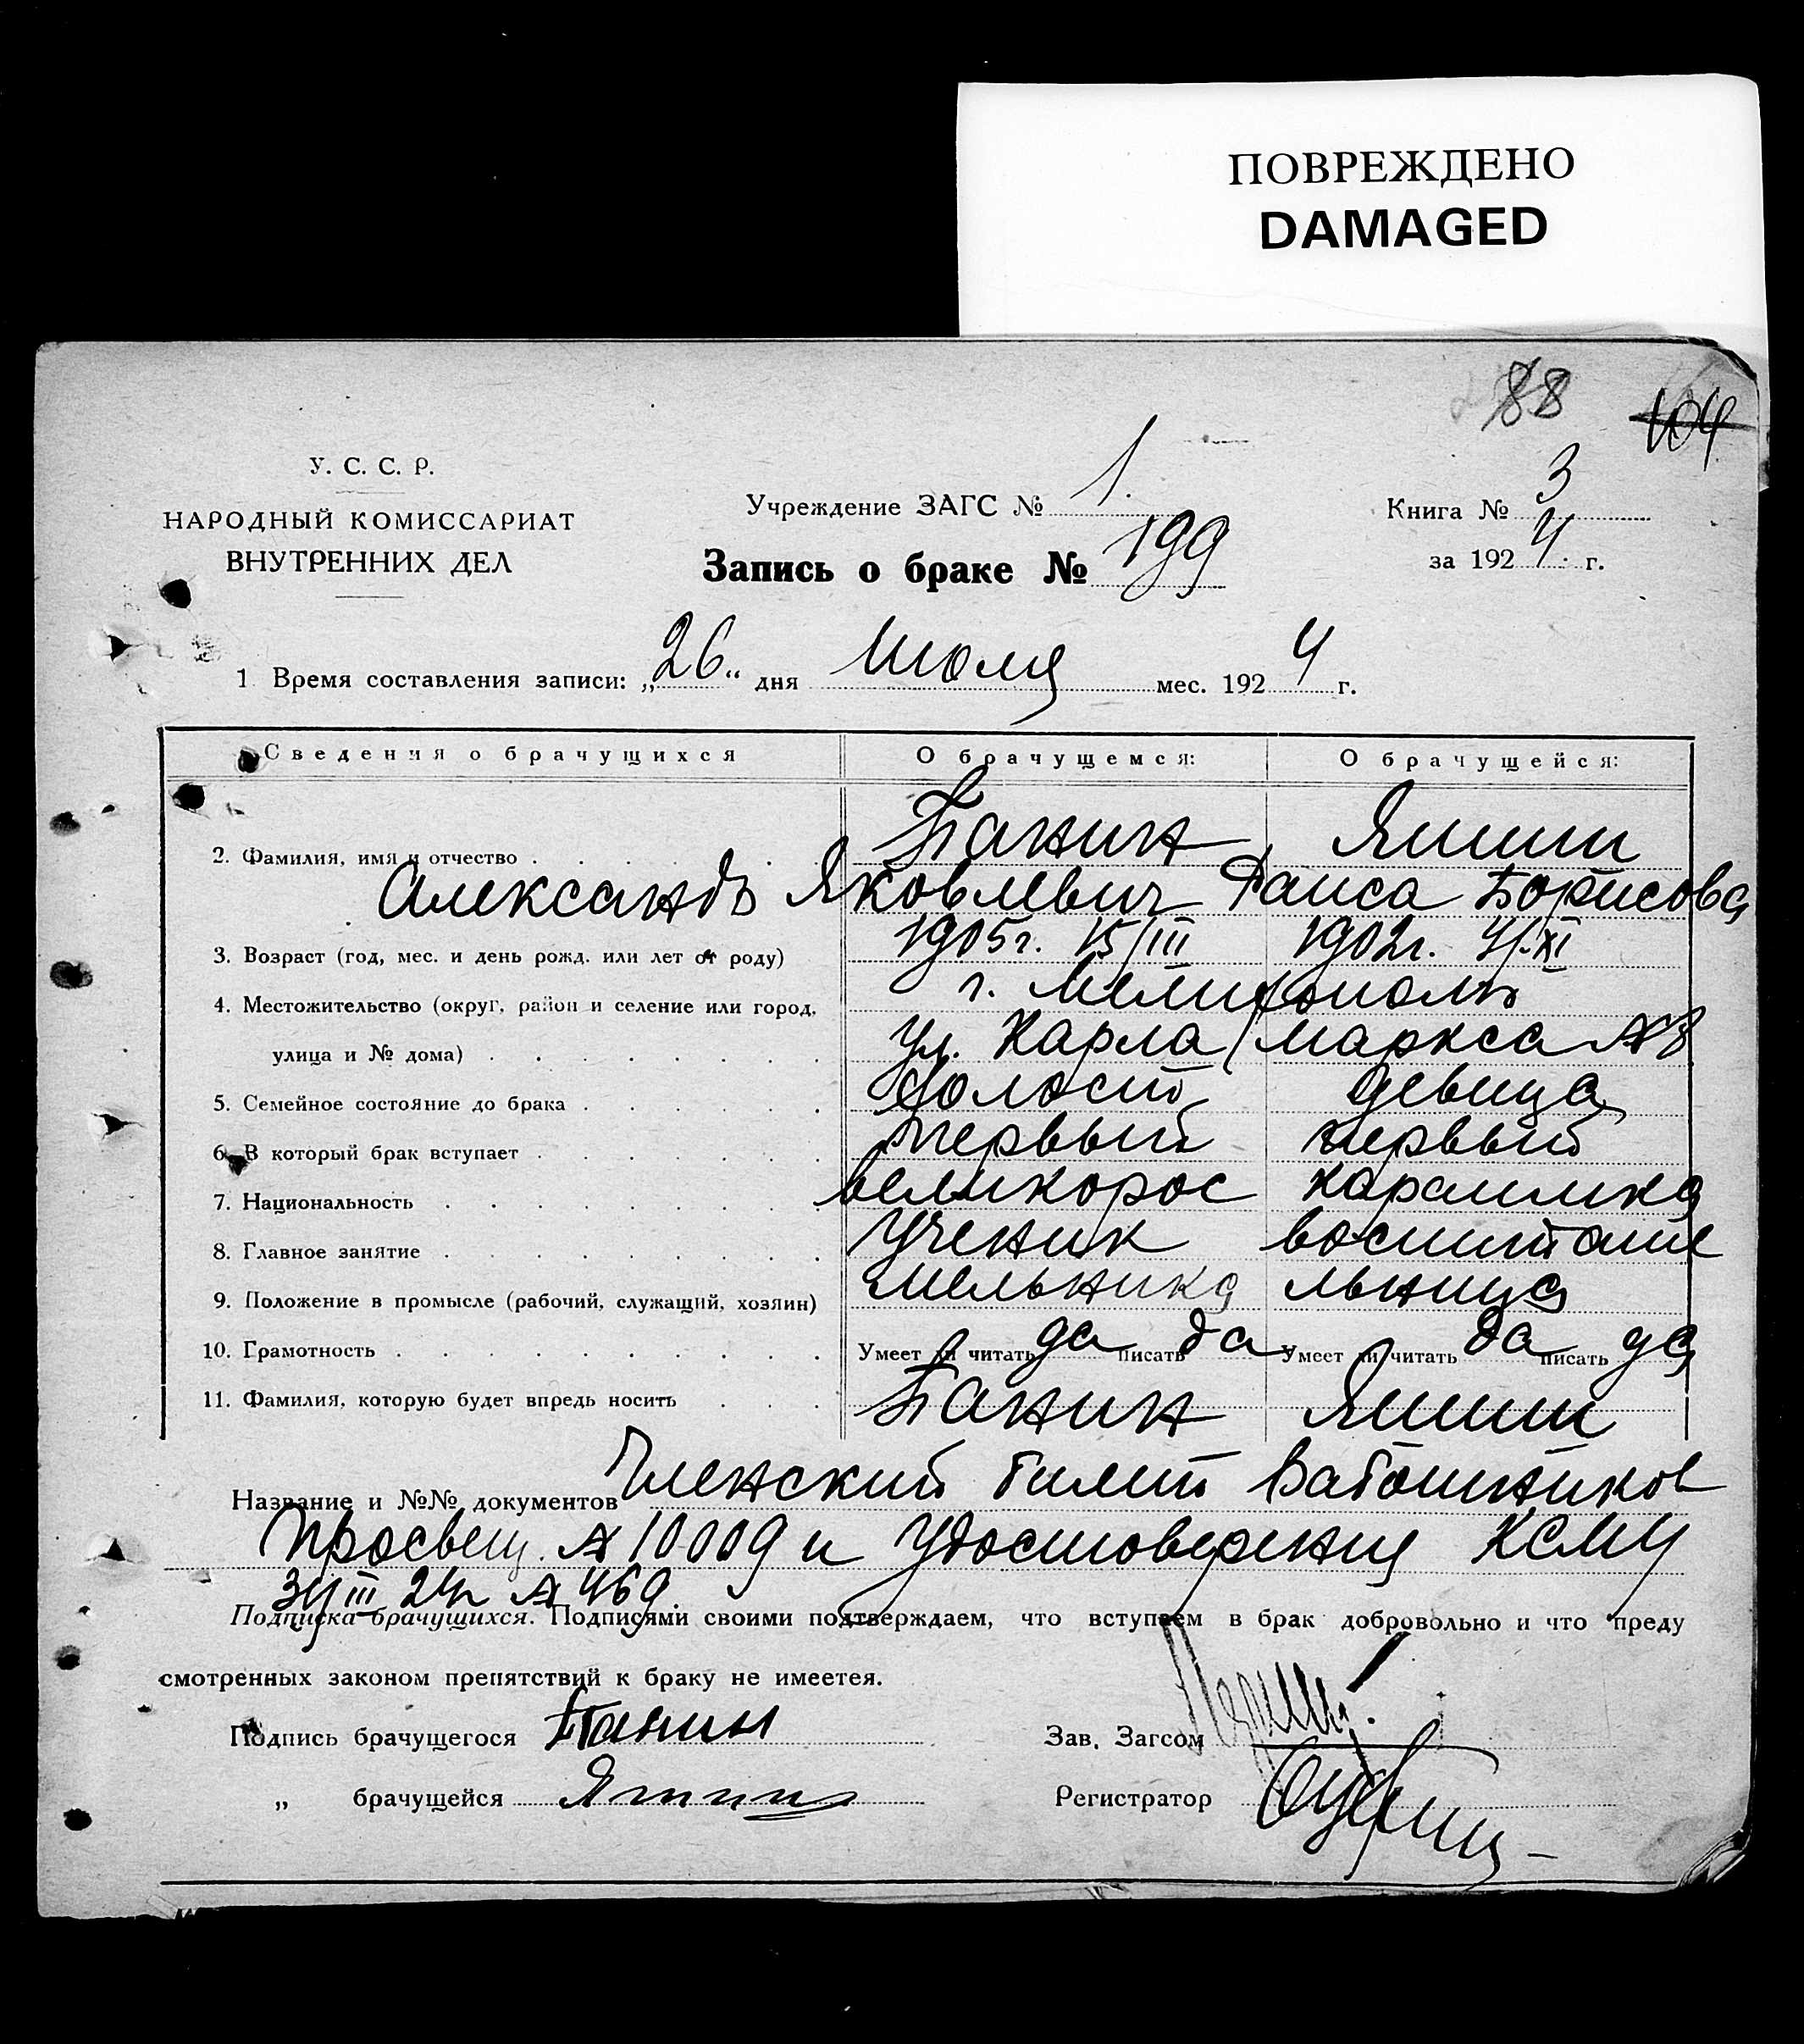 ПОВРЕЖДЕНО
DAMAGED
88
104
У. С. С. Р.
НАРОДНЫЙ КОМИССАРИАТ
ВНУТРЕННИХ ДЕЛ
Учреждение ЗАГС № 1.
Запись о браке № 199
Книга № 3
за 1924 г.
1 Время составления записи: „26“ дня Июля мес. 1924 г.
Сведения о брачущихся О брачущемся: О брачущейся:
2. Фамилия, имя и отчество Панин
Александр Яковлевич Раиса Борисова
3. Возраст (год, мес. и день рожд. или лет от роду) 1905г. 15/III 1902г. 4/XI
4. Местожительство (округ, район и селение или город, г. Мелитополь
улица и № дома) ул. Карла Маркса №
5. Семейное состояние до брака холост девица
6. В который брак вступает первый первый
7. Национальность великорос караимка
8. Главное занятие ученик воспитате
9. Положение в промысле (рабочий, служащий, хозяин) мельника льница
10. Грамотность Умеет ли читать да писать да Умеет ли читать да писать да
11. Фамилия, которую будет впредь носить Панин
Название и №№ документов Членский билет
Просвещ. № 10009 и Удостоверения КСМУ
III 24г № 469
Подписка брачущихся. Подписями своими подтверждаем, что вступаем в брак добровольно и что преду
смотренных законом препятствий к браку не имеетея.
Подпись брачущегося Панин
Зав. Загсом
„ брачущейся
Регистратор